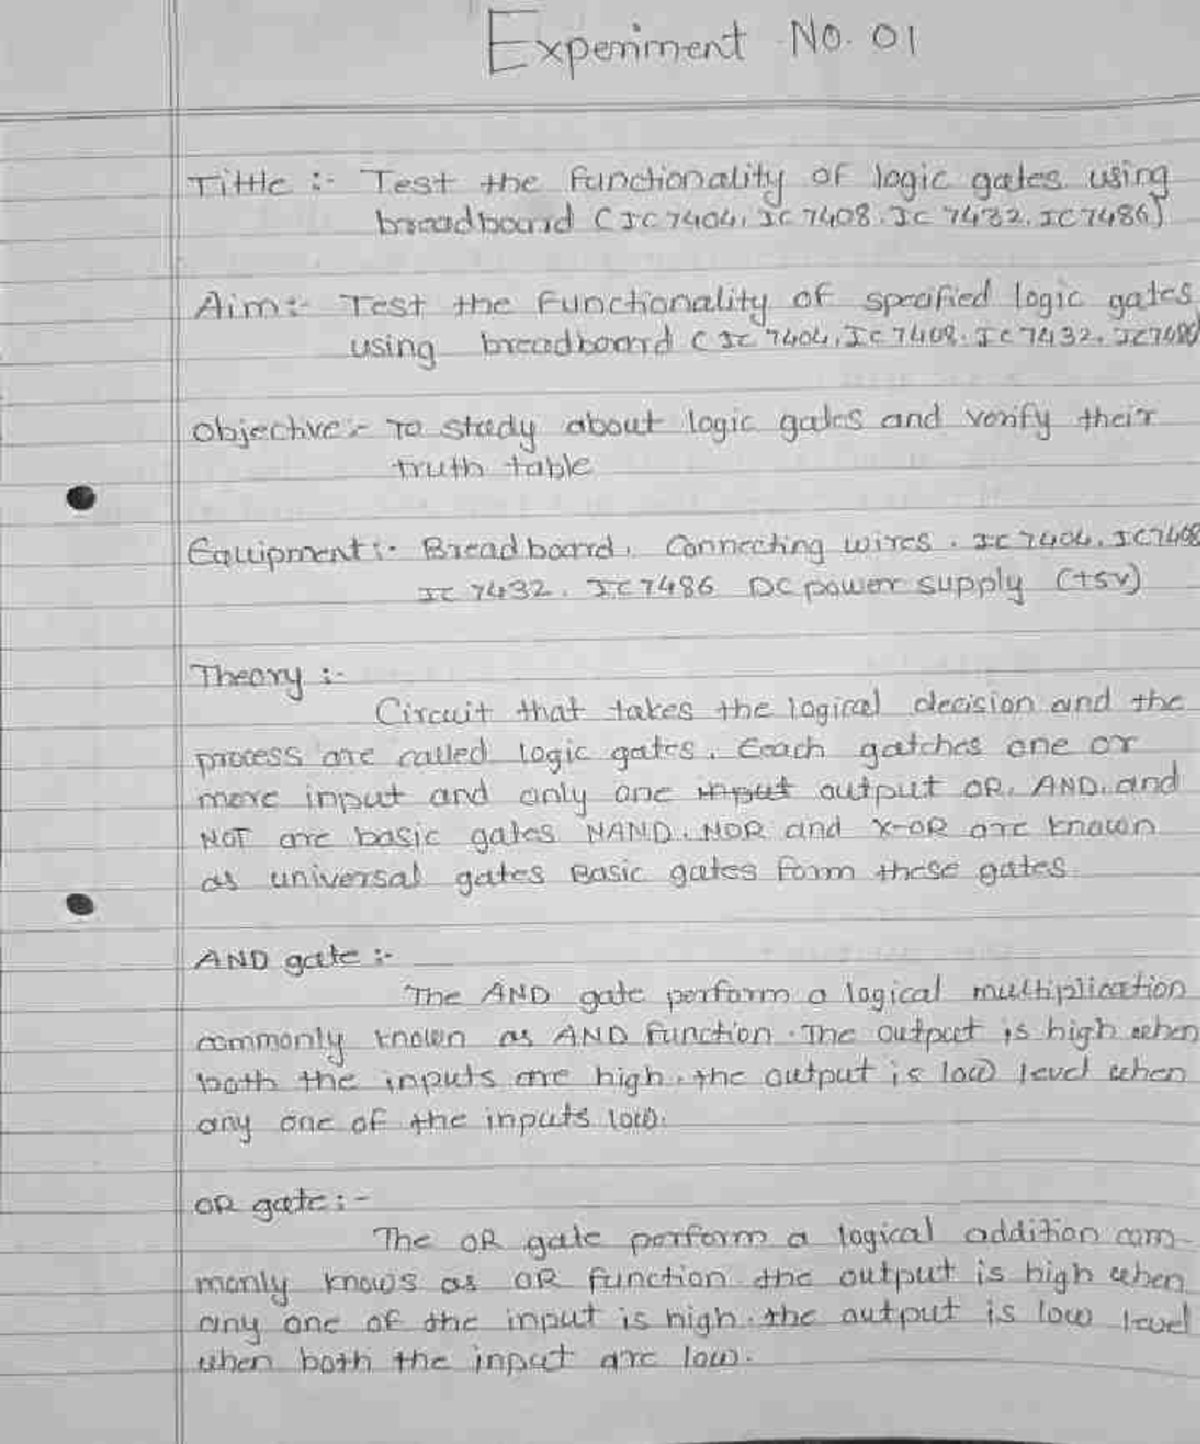 Experiment No. 01
Tittle :- Test the functionality of logic gates using
breadboard (IC 7404, IC 7408. IC 7432. IC 7486)
Aim:- Test the functionality of specified logic gates
using breadboard (IC 7404, IC 7408. IC 7432. IC7486)
Objective:- To study about logic gates and verify their
truth table
Equipment :- Bread board, Connecting wires. IC 7404. IC7408
IC 7432. IC 7486 DC power supply (+5v)
Theory :-
Circuit that takes the logical decision and the
process are called logic gates. Each gatches one or
more input and only one input output OR, AND, and
NOT are basic gates NAND. NOR and X-OR are known
as universal gates Basic gates form these gates.
AND gate :-
The AND gate perform a logical multiplication
commonly known as AND function. The output is high when
both the inputs are high. the output is low level when
any one of the inputs low.
OR gate:-
The OR gate perform a logical addition com-
monly knows as OR function the output is high when
any one of the input is high. the output is low level
when both the input are low.